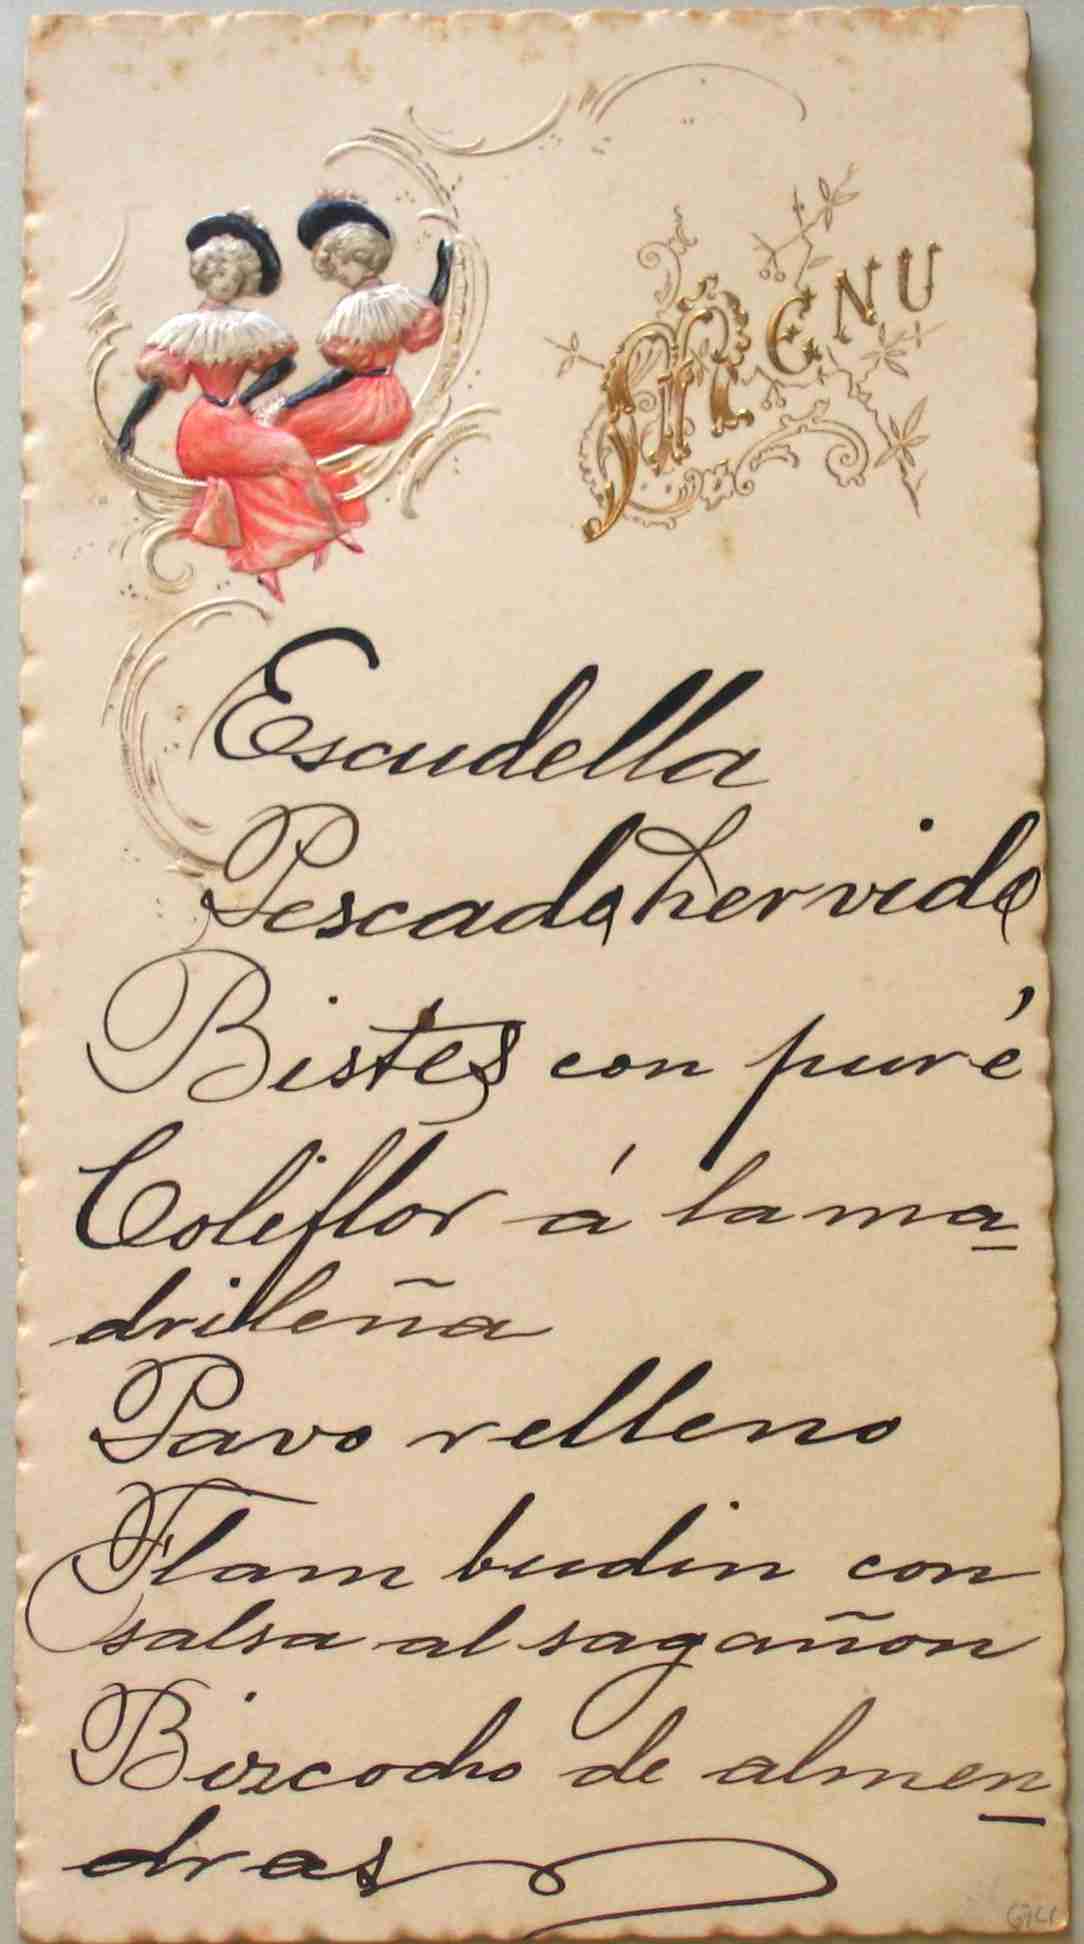 MENU
Escudella
Pescado hervido
Bistes con puré
Coliflor á la ma-
drileña
Pavo relleno
Flam budin con
salsa al sagañon
Bizcocho de almen-
dras